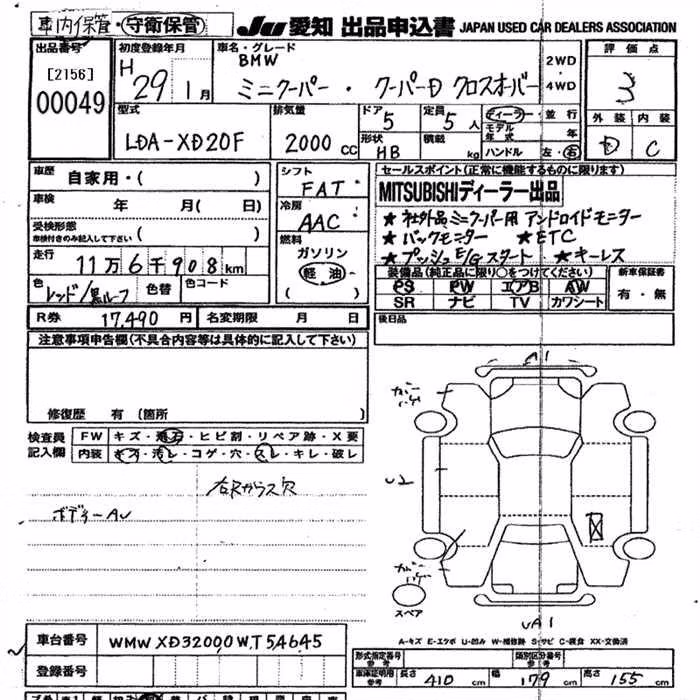 車内保管・守衛保管 JU 愛知 出品申込書 JAPAN USED CAR DEALERS ASSOCIATION
出品番号 初度登録年月 車名・グレード 評価点
[2156] H 29年 1月 BMW 2WD 3
00049 ミニクーパー・クーパーD クロスオーバー ・4WD
外装 内装
D C
型式 排気量 ドア 定員 ディーラー・並行
LDA-XD20F 2000 CC 5 5人 モデル年式 年
形状 積載 ハンドル 左・右
HB kg
車歴 自家用・( ) シフト FAT
車検 年 月( 日) 冷房 AAC
受検形態 燃料
車検付きのみ記入して下さい ( ) ガソリン
走行 11万6千908km 軽油
色 レッド/黒ルーフ 色替 色コード ( )
セールスポイント(正常に機能するものに限ります)
MITSUBISHIディーラー出品
★社外品ミニクーパー用 アンドロイドモニター
★バックモニター ★ETC
★プッシュE/Gスタート ★キーレス
装備品(純正品に限り○をつけてください) 新車保証書
PS PW エアB AW 有・無
SR ナビ TV カワシート
R券 17,490円 名変期限 月 日
後日品
注意事項申告欄(不具合内容等は具体的に記入して下さい)
修復歴 有(箇所 )
検査員 FW キズ・飛石・ヒビ割・リペア跡・X要
記入欄 内装 キズ・汚レ・コゲ・穴・スレ・キレ・破レ
ボデーAU
A1
ガバーハゲ
U2
ガバーハゲ
スペア
UA1
A-キズ E-エクボ U-凹み W-補修跡 S-サビ C-腐食 XX-交換済
車台番号 WMWXD32000WT54645
登録番号
形式指定番号 参考 類別区分番号 参考
車庫証明用 参考 長さ 410 cm 幅 179 cm 高さ 155 cm